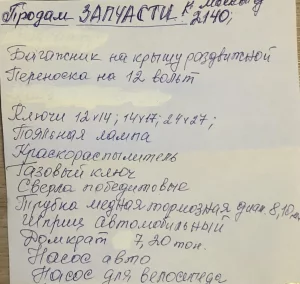 Продам ЗАПЧАСТИ к Москвич
2140;
Багажник на крышу раздвижной
Переноска на 12 вольт
Ключи 12x14; 14x17; 24x27;
Паяльная лампа
Краскораспылитель
Газовый ключ
Сверла победитовые
Трубка медная тормозная диам. 8,10 мм
Шприц автомобильный
Домкрат 7,20 тон.
Насос авто
Насос для велосипеда